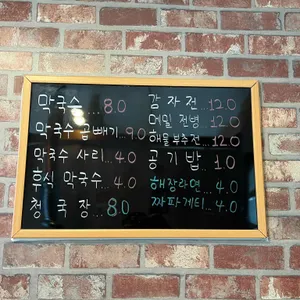 막국수... 8.0
막국수 곱빼기... 9.0
막국수 사리... 4.0
후식 막국수... 4.0
청국장... 8.0
감자전... 12.0
메밀 전병... 12.0
해물부추전... 12.0
공기밥... 1.0
해장라면... 4.0
짜파게티... 4.0